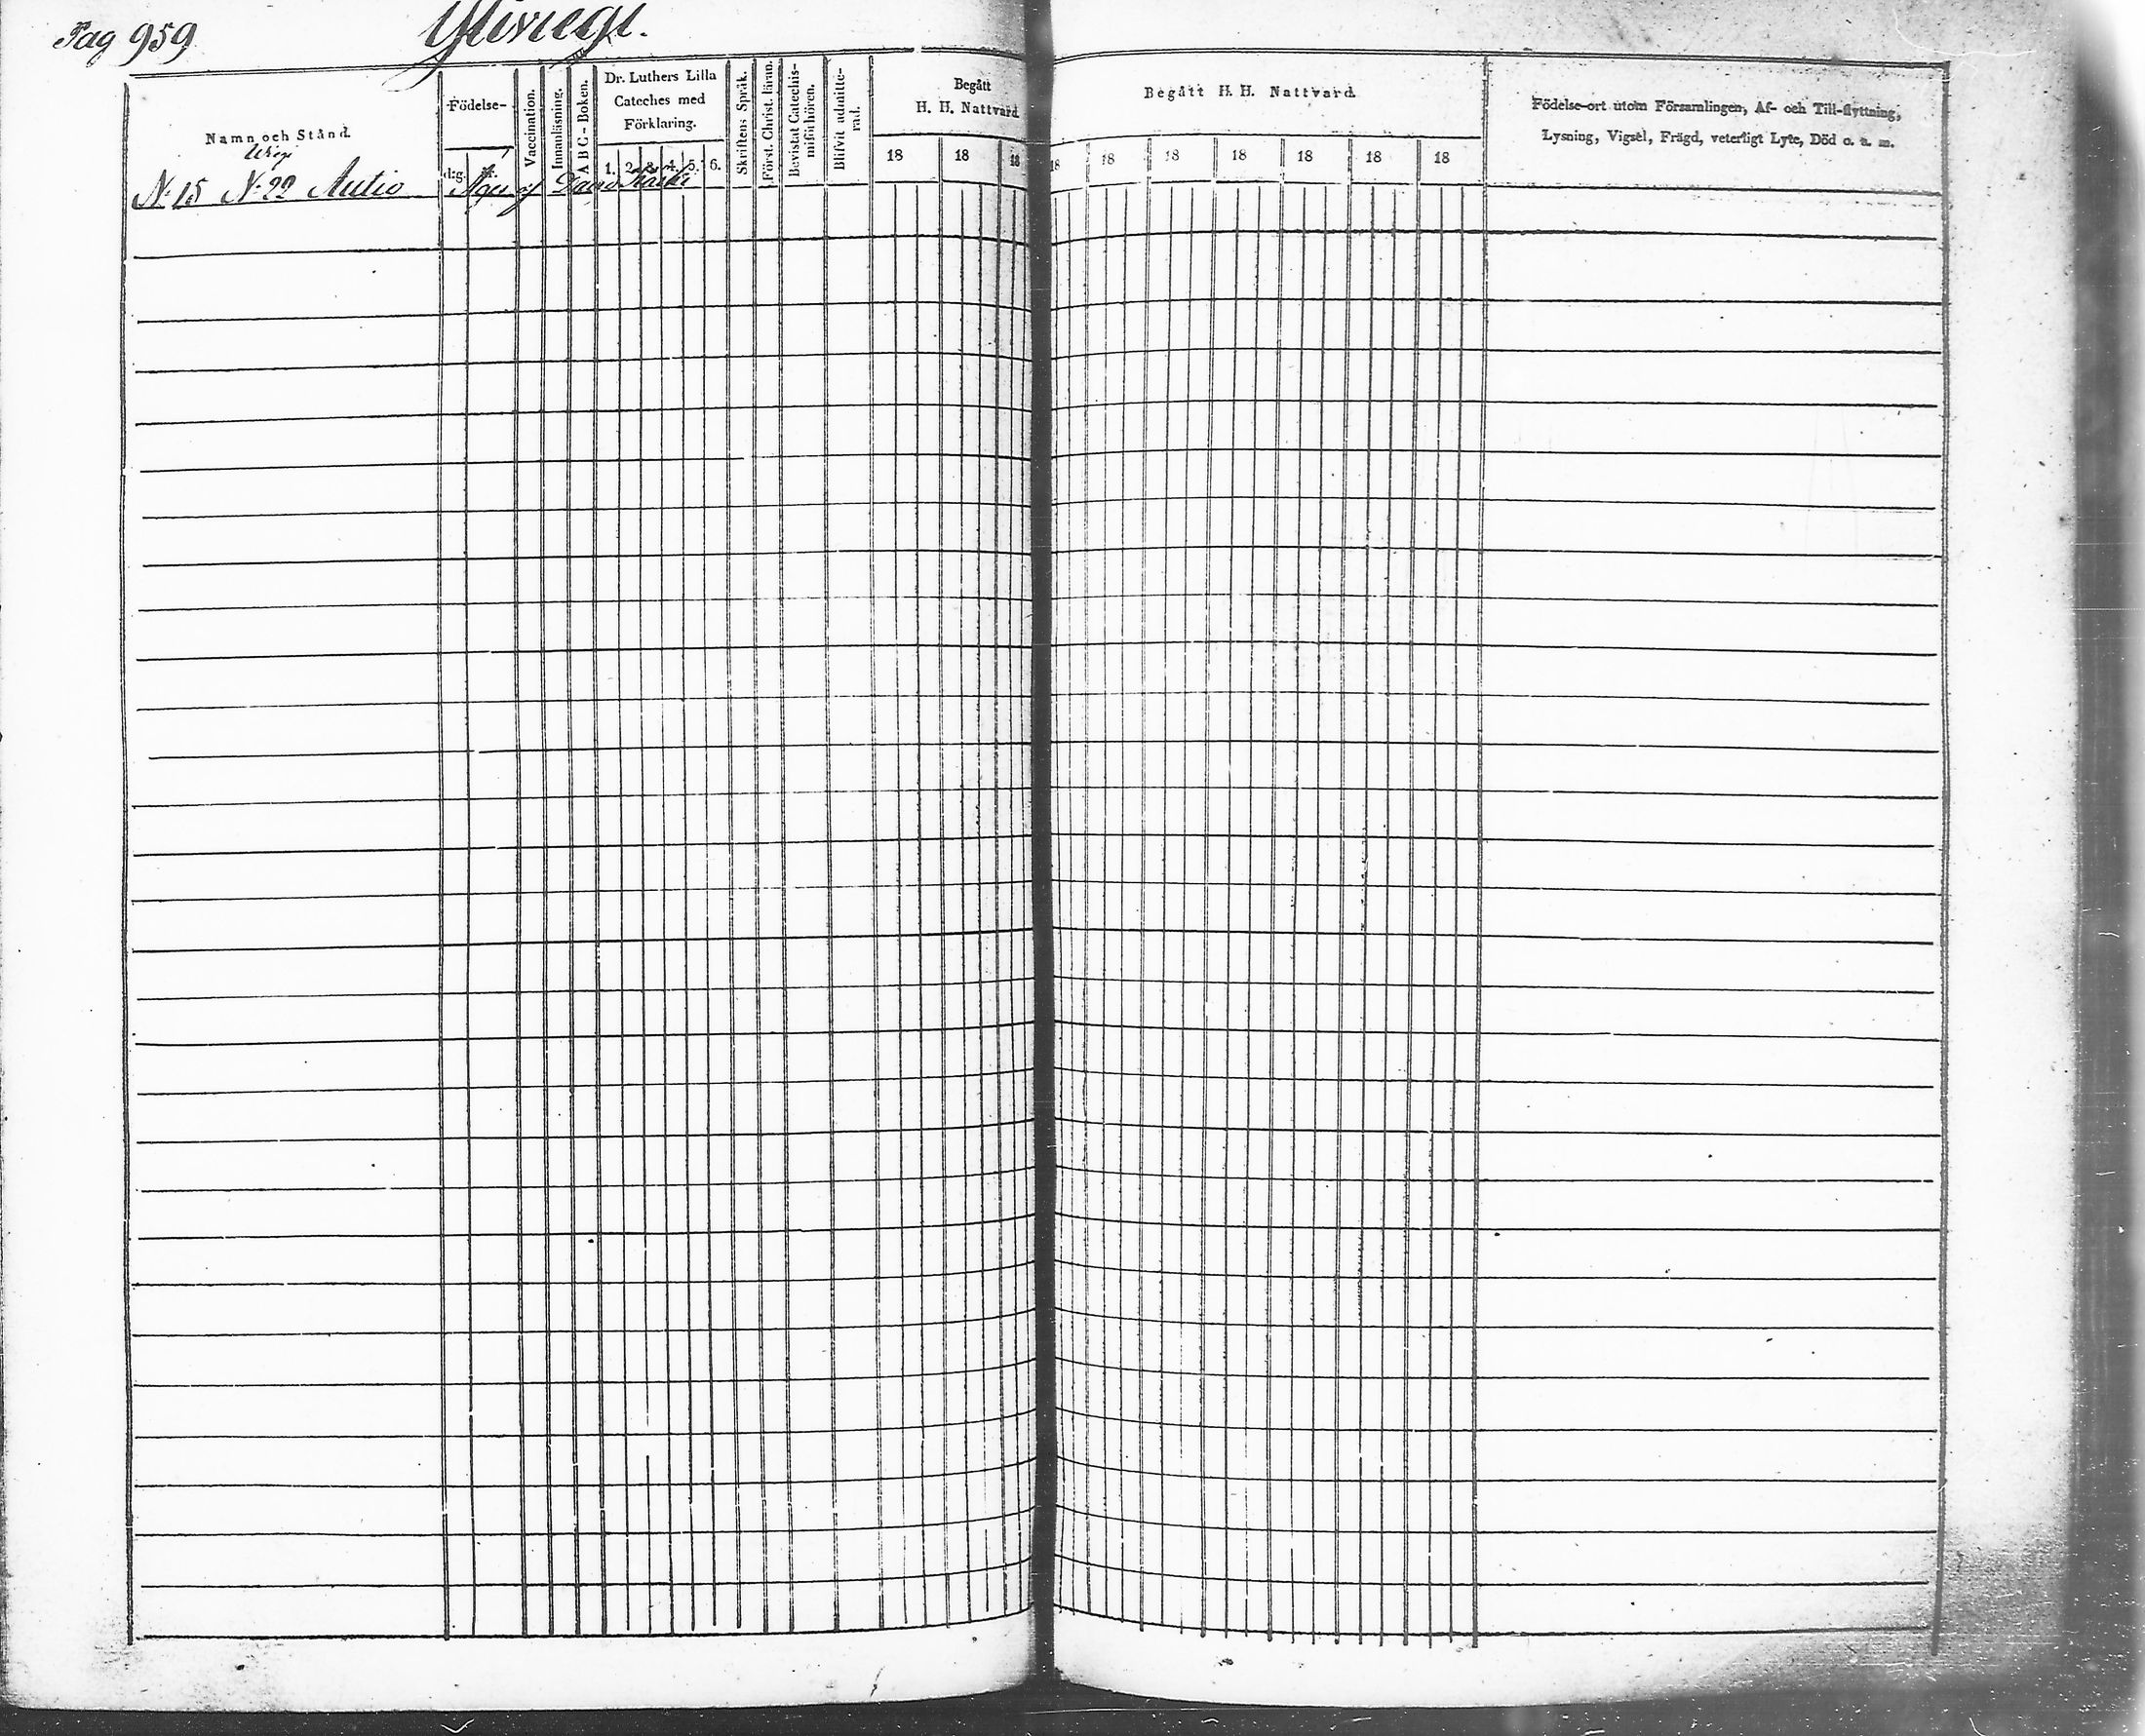 Pag 959
Namn och Stånd.
Födelse-
d:g.
Vaccination.
Innanläsning.
A B C - Boken.
Dr. Luthers Lilla
Cateches med
Förklaring.
1. 2. 3. 4. 5. 6.
Skriftens Språk.
Först. Christ. läran.
Bevistat Catechis-
miförhören.
Blifvit admitte-
rad.
Begått
H. H. Nattvard
18 18 18
Begått H. H. Nattvard
18 18 18 18 18 18 18
Födelse-ort utom Församlingen, Af- och Till-flyttning,
Lysning, Vigsel, Frägd, veterligt Lyte, Död o. s. m.
N: 15 N: 22 Autio